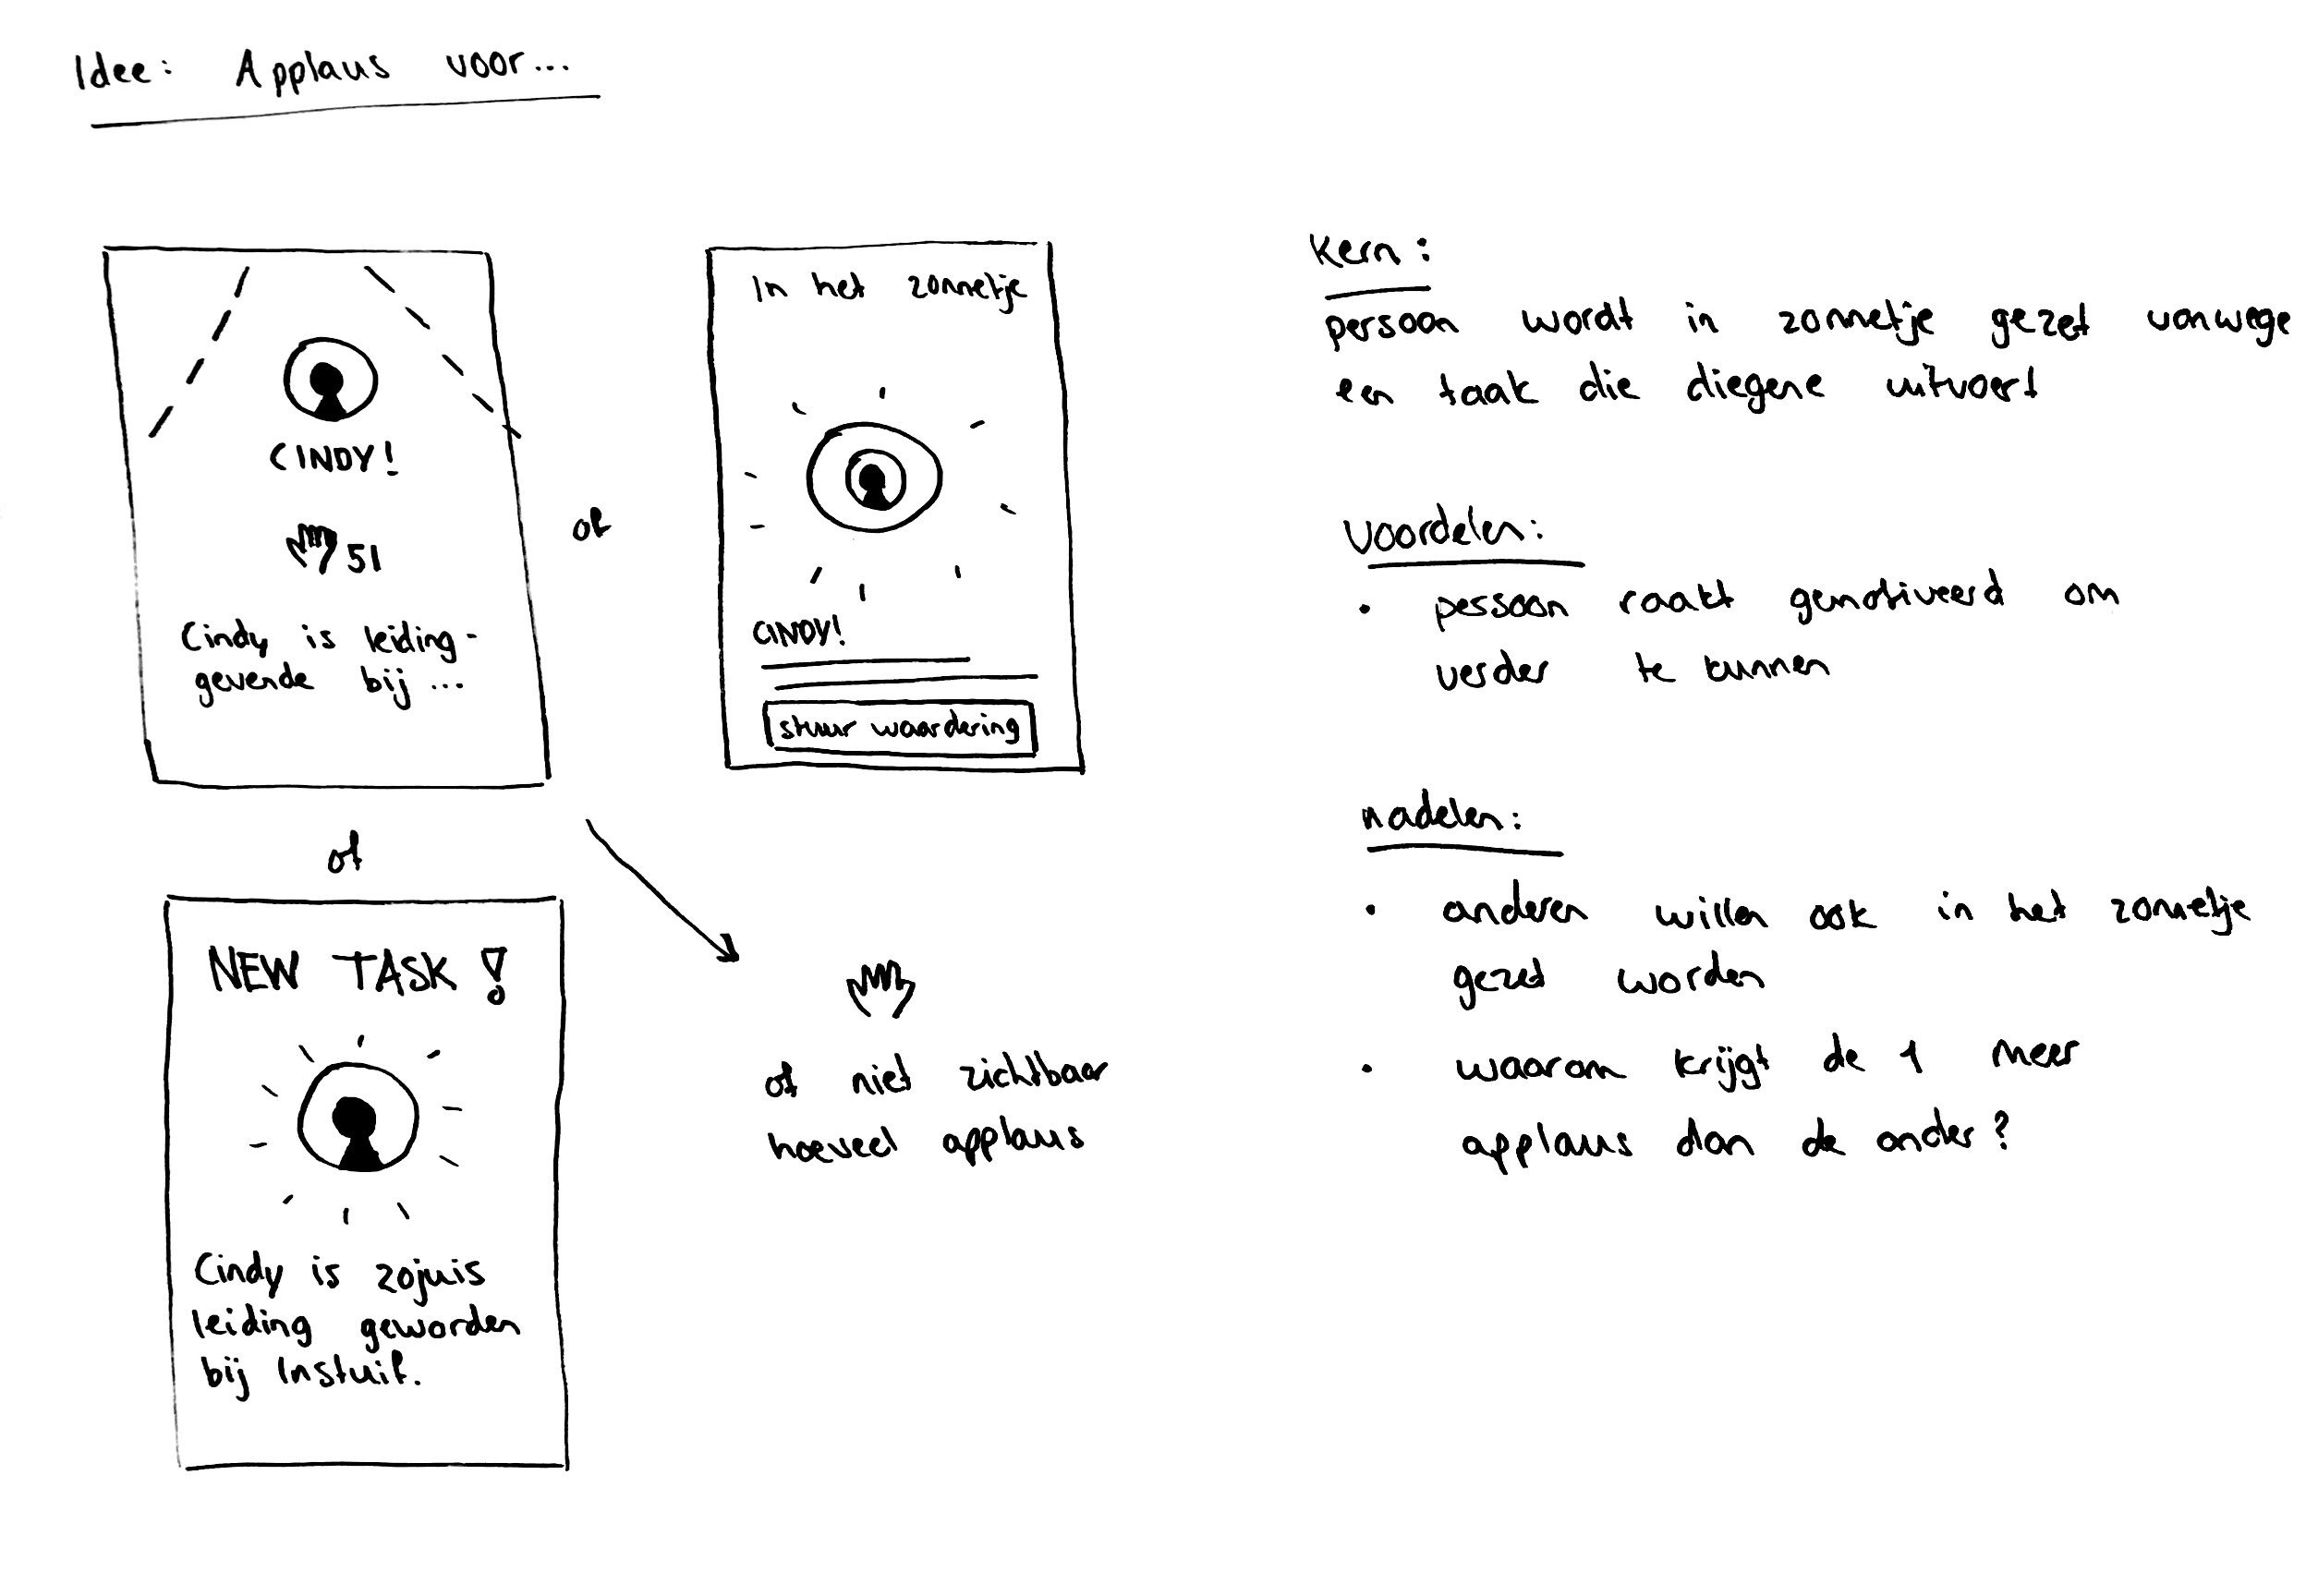 Idee: Applaus voor...
CINDY!
51
Cindy is leiding-
gevende bij ...
of
In het zonnetje
CINDY!
stuur waardering
of
NEW TASK!
Cindy is zojuis
leiding geworden
bij Instuif.
of niet zichtbaar
hoeveel applaus
Kern:
persoon wordt in zonnetje gezet vanwege
een taak die diegene uitvoert
Voordelen:
• persoon raakt gemotiveerd om
verder te kunnen
nadelen:
• anderen willen ook in het zonnetje
gezet worden
• waarom krijgt de 1 meer
applaus dan de ander?